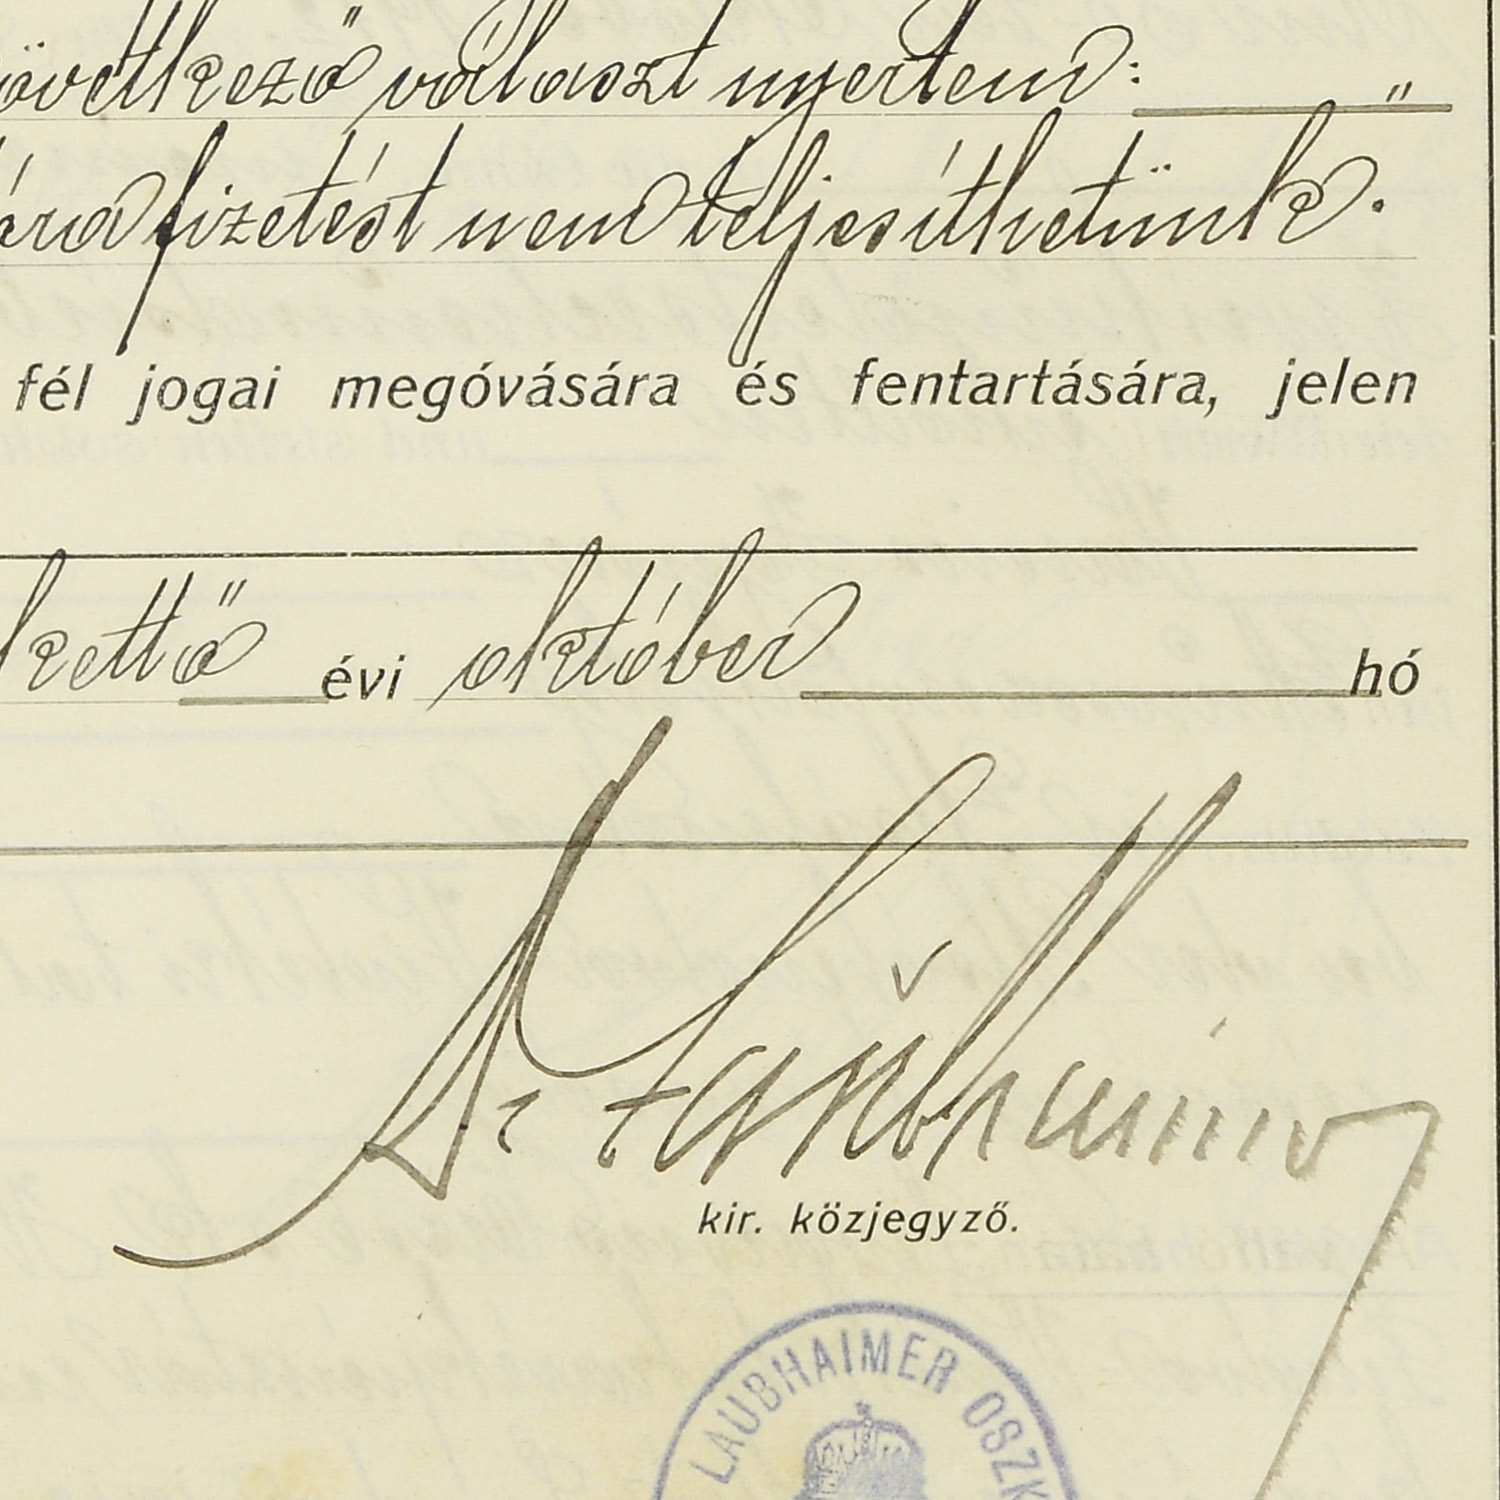 övetkező választ nyertem: "
ára fizetést nem teljesíthetünk.
fél jogai megóvására és fentartására, jelen
kettő évi október hó
Dr Laubhaimer
kir. közjegyző.
LAUBHAIMER OSZK